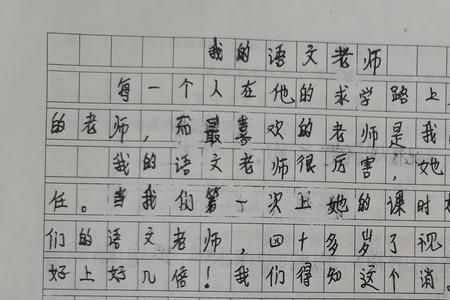 我的语文老师
每一个人在他的求学路上
的老师，而最喜欢的老师是我
我的语文老师很厉害，她
任。当我们第一次上她的课时
们的语文老师，四十多岁了视
好上好几倍！我们得知这个消